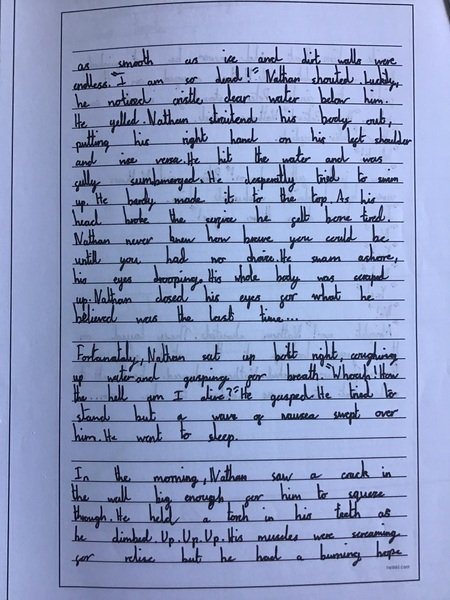 as smooth as ise and dirt walls were
endless. "I am so dead!" Nathan shouted. Luckily,
he noticed cristle clear water below him.
He yelled. Nathan streitend his body out,
putting his right hand on his left shoulder
and vise versa. He hit the water and was
fully sumbmerged. He desperatly tried to swim
up. He bardy made it to the top. As his
head broke the serfice he felt bone tired.
Nathan never knew how brave you could be
untill you had no choice. He swam ashore,
his eyes drooping. His whole body was scraped
up. Nathan closed his eyes for what he
believed was the last time...
Fortanataly, Nathan sat up bolt right, coughing
up water and gasping for breath. "Whoah! How
the hell am I alive?" He gasped. He tried to
stand but a wave of nausea swept over
him. He went to sleep.
In the morning, Nathan saw a crack in
the wall big enough for him to squeeze
through. He held a torch in his teeth as
he climbed. Up. Up. Up. His muscles were screaming
for relise but he had a burning hope
twinkl.com